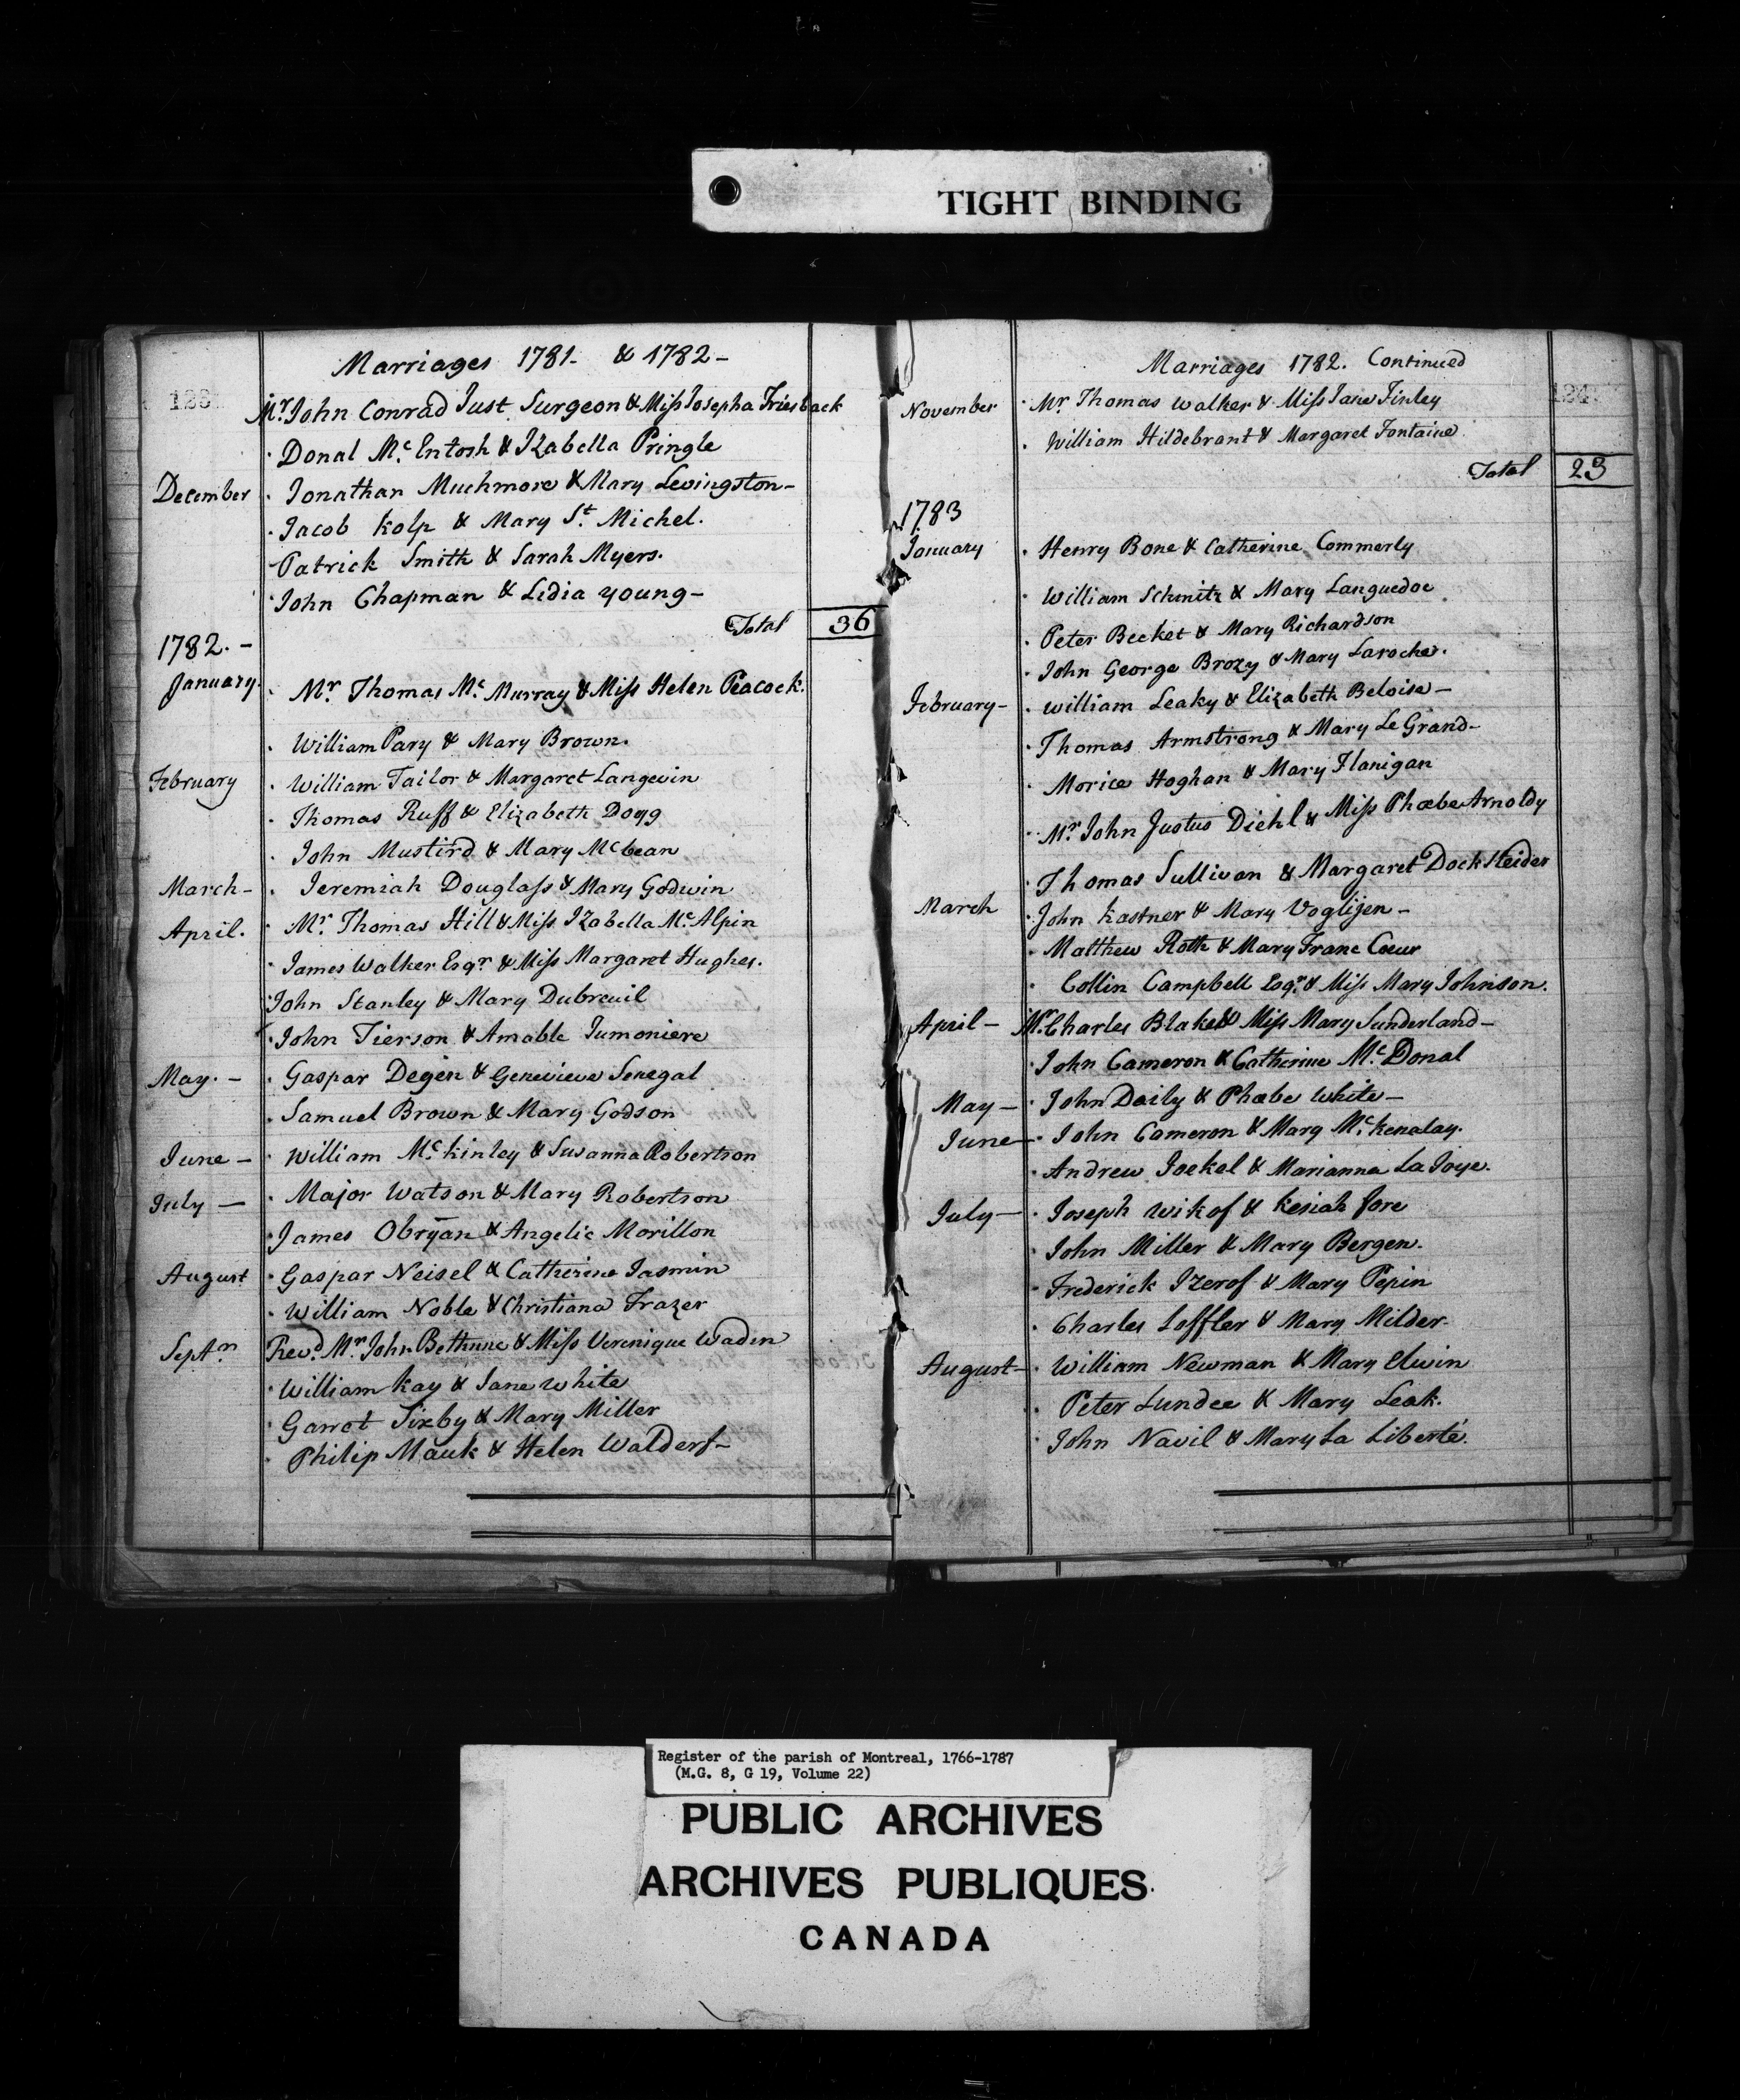 TIGHT BINDING
Marriages 1781- & 1782-
Mr. John Conrad Just Surgeon & Miss Josepha Friesback
Donal Mc. Entosh & Izabella Pringle
December Jonathan Muchmore & Mary Levingston-
Jacob Kolp & Mary St. Michel.
Patrick Smith & Sarah Myers.
John Chapman & Lidia young-
Total 36
1782.-
January. Mr Thomas Mc. Murray & Miss Helen Peacock.
William Pary & Mary Brown.
February William Tailor & Margaret Langevin
Thomas Ruff & Elizabeth Dogg
John Mustird & Mary Mcbean
March- Jeremiah Douglass & Mary Godwin
April. Mr. Thomas Hill & Miss Izabella Mc. Alpin
James Walker Esqr. & Miss Margaret Hughes.
John Stanley & Mary Dubreuil
John Tierson & Amable Jumoniere
May.- Gaspar Degen & Genevieve Senegal
Samuel Brown & Mary Godson
June- William Mc. kinley & Susanna Robertson
July- Major Watson & Mary Robertson
James Obryan & Angelic Morillon
August Gaspar Neisel & Catherine Jasmin
William Noble & Christiana Frazer
Septr. Revd. Mr. John Bethune & Miss Verenique Waden
William Kay & Jane White
Garrot Sixby & Mary Miller
Philip Mauk & Helen Walderf-
Marriages 1782. Continued
124
November Mr. Thomas Walker & Miss Jane Finley
William Hildebrant & Margaret Fontaine
Total 23
1783
January Henry Bone & Catherine Commerly
William Schmitz & Mary Languedoc
Peter Becket & Mary Richardson
John George Brozy & Mary Laroche.
February- William Leaky & Elizabeth Beloise-
Thomas Armstrong & Mary Le Grand-
Morice Hoghan & Mary Flanigan
Mr. John Justus Diehl & Miss Phœbe Arnoldy
Thomas Sullivan & Margaret Docksteider
March John Kastner & Mary Voglijen-
Matthew Roth & Mary Franc Cœur
Collin Campbell Esqr. & Miss Mary Johnson.
April- Mr. Charles Blake & Miss Mary Sunderland-
John Cameron & Catherine Mc. Donal
May- John Daily & Phœbe White-
June- John Cameron & Mary Mc. Kenalay.
Andrew Jockel & Marianna La Joye.
July- Joseph Wikof & Kesiah fore
John Miller & Mary Bergen.
Frederick Izerof & Mary Pepin
Charles Loffler & Mary Milder
August- William Newman & Mary Elwin
Peter Lundee & Mary Leak.
John Navil & Mary La Liberté.
Register of the parish of Montreal, 1766-1787
(M.G. 8, G 19, Volume 22)
PUBLIC ARCHIVES
ARCHIVES PUBLIQUES
CANADA